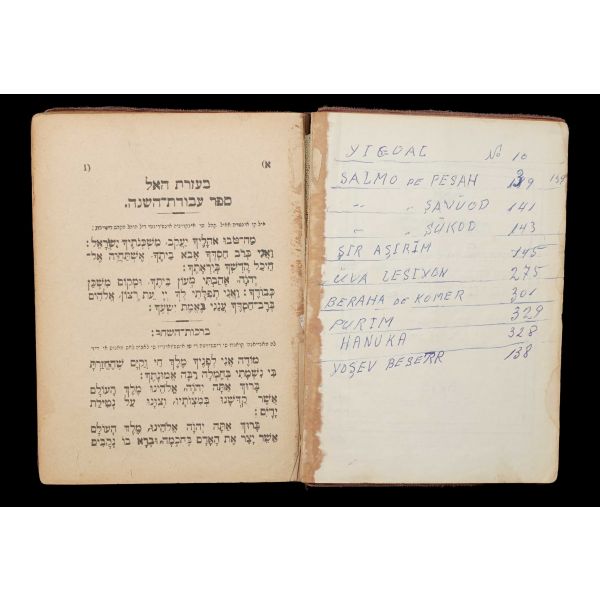 א) (1
בעזרת האל
ספר עבודת־השנה.
מה־טבו אהליך יעקב. משכנתיך ישראל:
ואני ברב חסדך אבא ביתך. אשתחוה אל־
היכל קדשך ביראתך:
יהוה אהבתי מעון ביתך. ומקום משכן
כבודך: ואני תפלתי לך יי עת רצון, אלהים
ברב־חסדך ענני באמת ישעך:
ברכות־השחר:
מודה אני לפניך מלך חי וקים שהחזרת
בי נשמתי בחמלה רבה אמונתך:
ברוך אתה יהוה, אלהינו מלך העולם
אשר קדשנו במצותיו, וצונו על נטילת
ידים:
ברוך אתה יהוה אלהינו, מלך העולם
אשר יצר את האדם בחכמה, וברא בו נקבים
YIGDAL No 10
SALMO DE PESAH 139 139
" " ŞAVUOD 141
" " SUKOD 143
ŞIR AŞIRIM 145
UVA LESIYON 275
BERAHA de KOMER 301
PURIM 329
HANUKA 328
YOŞEV BESETR 138